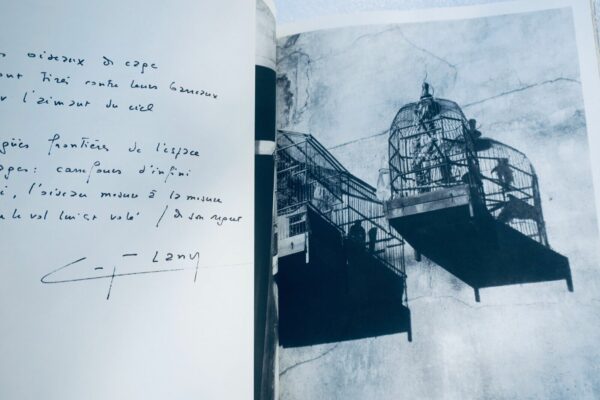 oiseaux de cage
sont tirés contre leurs barreaux
l'aimant du ciel
frontières de l'espace
cages: carrefours d'infini
, l'oiseau mesure à la mesure
le vol lui est volé / de son regard
Lany